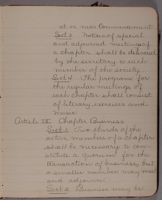 at or near Commencement.
Sect. 3 Notices of special
and adjourned meetings of
a chapter shall be delivered
by the secretary to each
member of the society.
Sect. 4 The programs for
the regular meetings of
each chapter shall consist
of literary exercises and
music.
Article III Chapter Business
Sect. 1 Two thirds of the
active members of a chapter
shall be necessary to con-
stitute a quorum for the
transaction of business, but
a smaller number may meet
and adjourn.
Sect. 2 Business may be